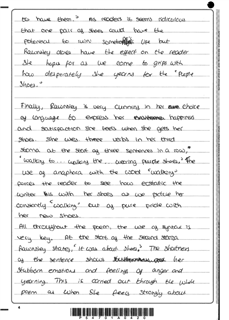 to have them." As readers it seems ridiculous
that one pair of shoes could have the
potential to ruin someones life but
Rawnsley does have the effect on the reader
She hopes for as we come to grips with
how desperately she yearns for the "Purple
Shoes."
Finally, Rawnsley is very cunning in her choice
of language to express her happiness
and satisfaction she feels when she gets her
shoes. She uses three verbs in her third
stanza at the start of three sentences in a row,
"walking to... walking the... wearing purple shoes." The
use of anaphora with the word "walking"
forces the reader to see how ecstatic the
writer is with her shoes as we picture her
constantly "walking" out of pure pride with
her new shoes.
All throughout the poem the use of syntax is
very key. At the start of the second stanza
Rawnsley states, "It was about shoes," The shortness
of the sentence shows her
stubborn emotions and feelings of anger and
yearning. This is carried out through the whole
poem as when she feels strongly about